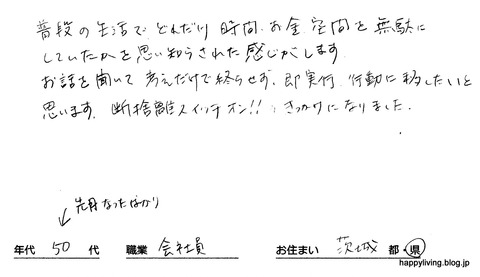 普段の生活でどれだけ時間、お金、空間を無駄に
していたかを思い知らされた感じがします。
お話を聞いて考えだけで終らせず、即実行、行動に移したいと
思います。断捨離スイッチオン!! きっかけになりました。
先月なったばかり
年代 50 代 職業 会社員 お住まい 茨城 都・県
happyliving.blog.jp